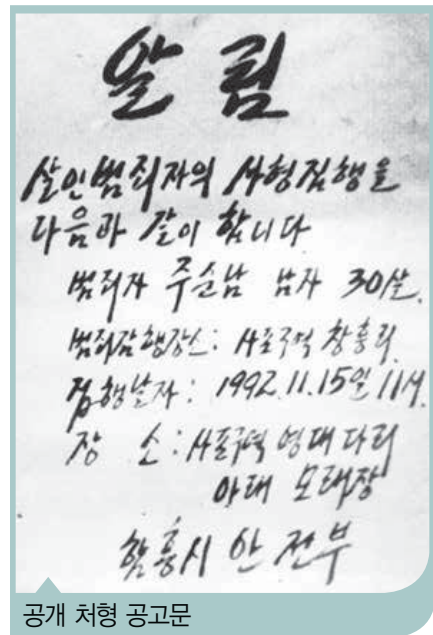 알림
살인범죄자의 사형집행을
다음과 같이 합니다
범죄자 주순남 남자 30살.
범죄감행장소: 사포구역 창흥리.
집행날자: 1992. 11. 15일 11시.
장 소: 사포구역 영대다리
아래 모래장
함흥시 안전부
공개 처형 공고문